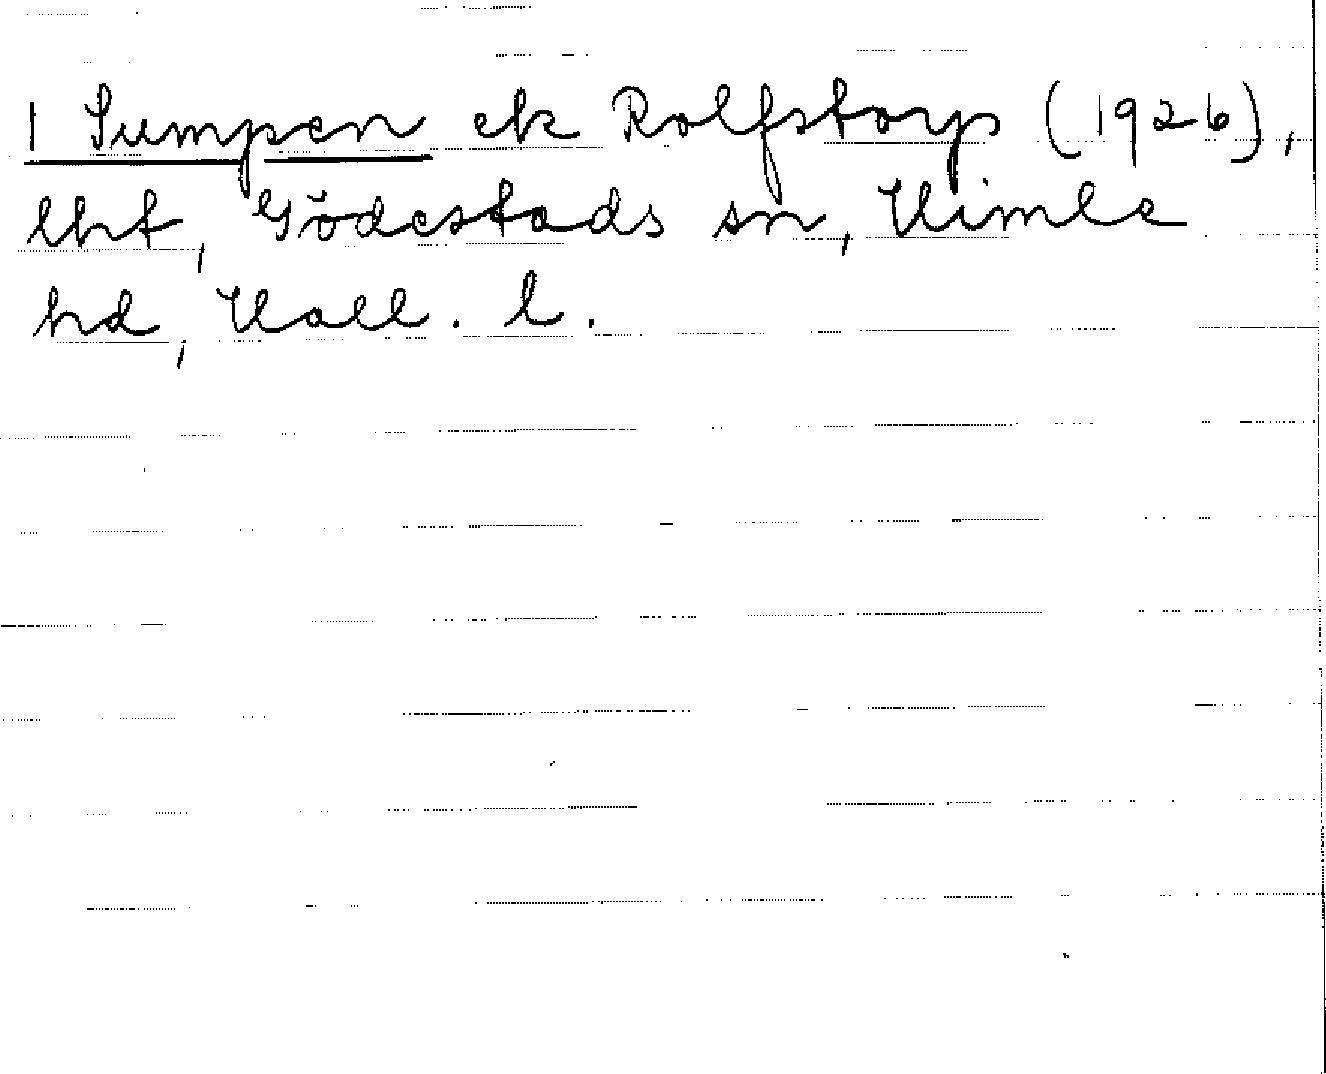 1 Sumpen ek Rolfstorp (1926),
lht, Gödestads sn, Himle
hd, Hall. l.